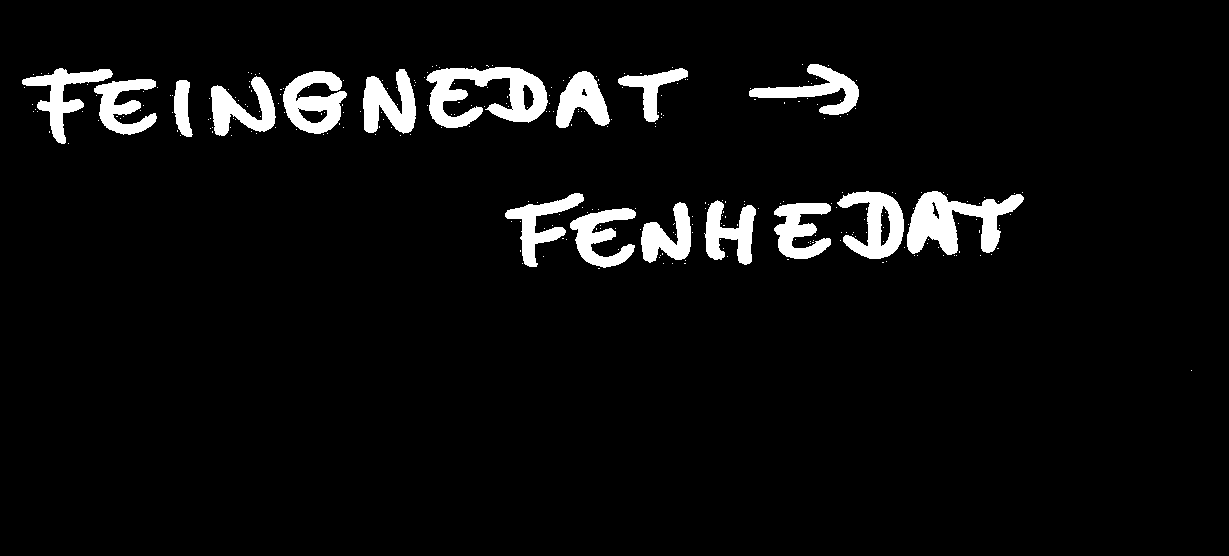 FEINGNEDAT →
FENHEDAT